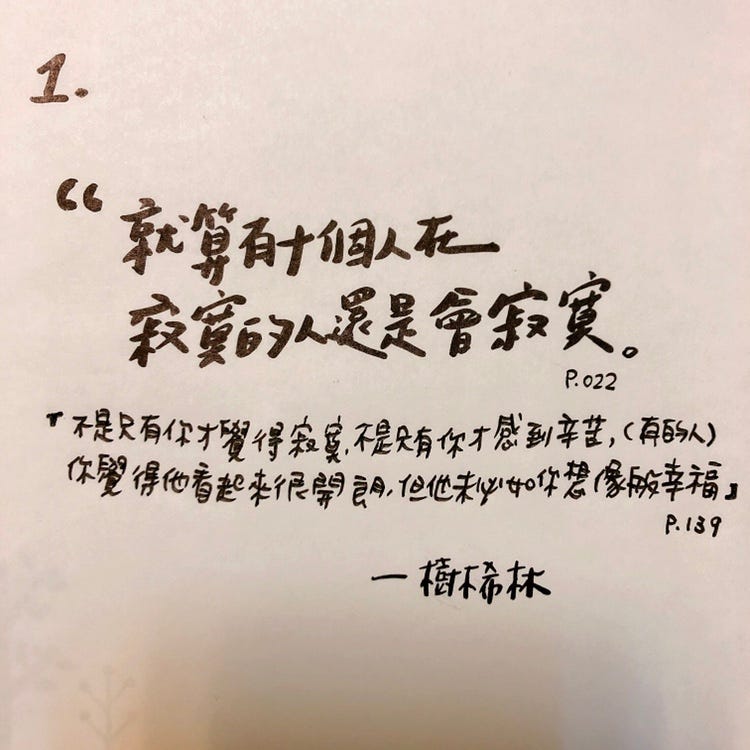 1.
“就算有十個人在
寂寞的人還是會寂寞。
P.022
『不是只有你才覺得寂寞,不是只有你才感到辛苦,(有的人)
你覺得他看起來很開朗,但他未必如你想像般幸福』
P.139
—樹木希林